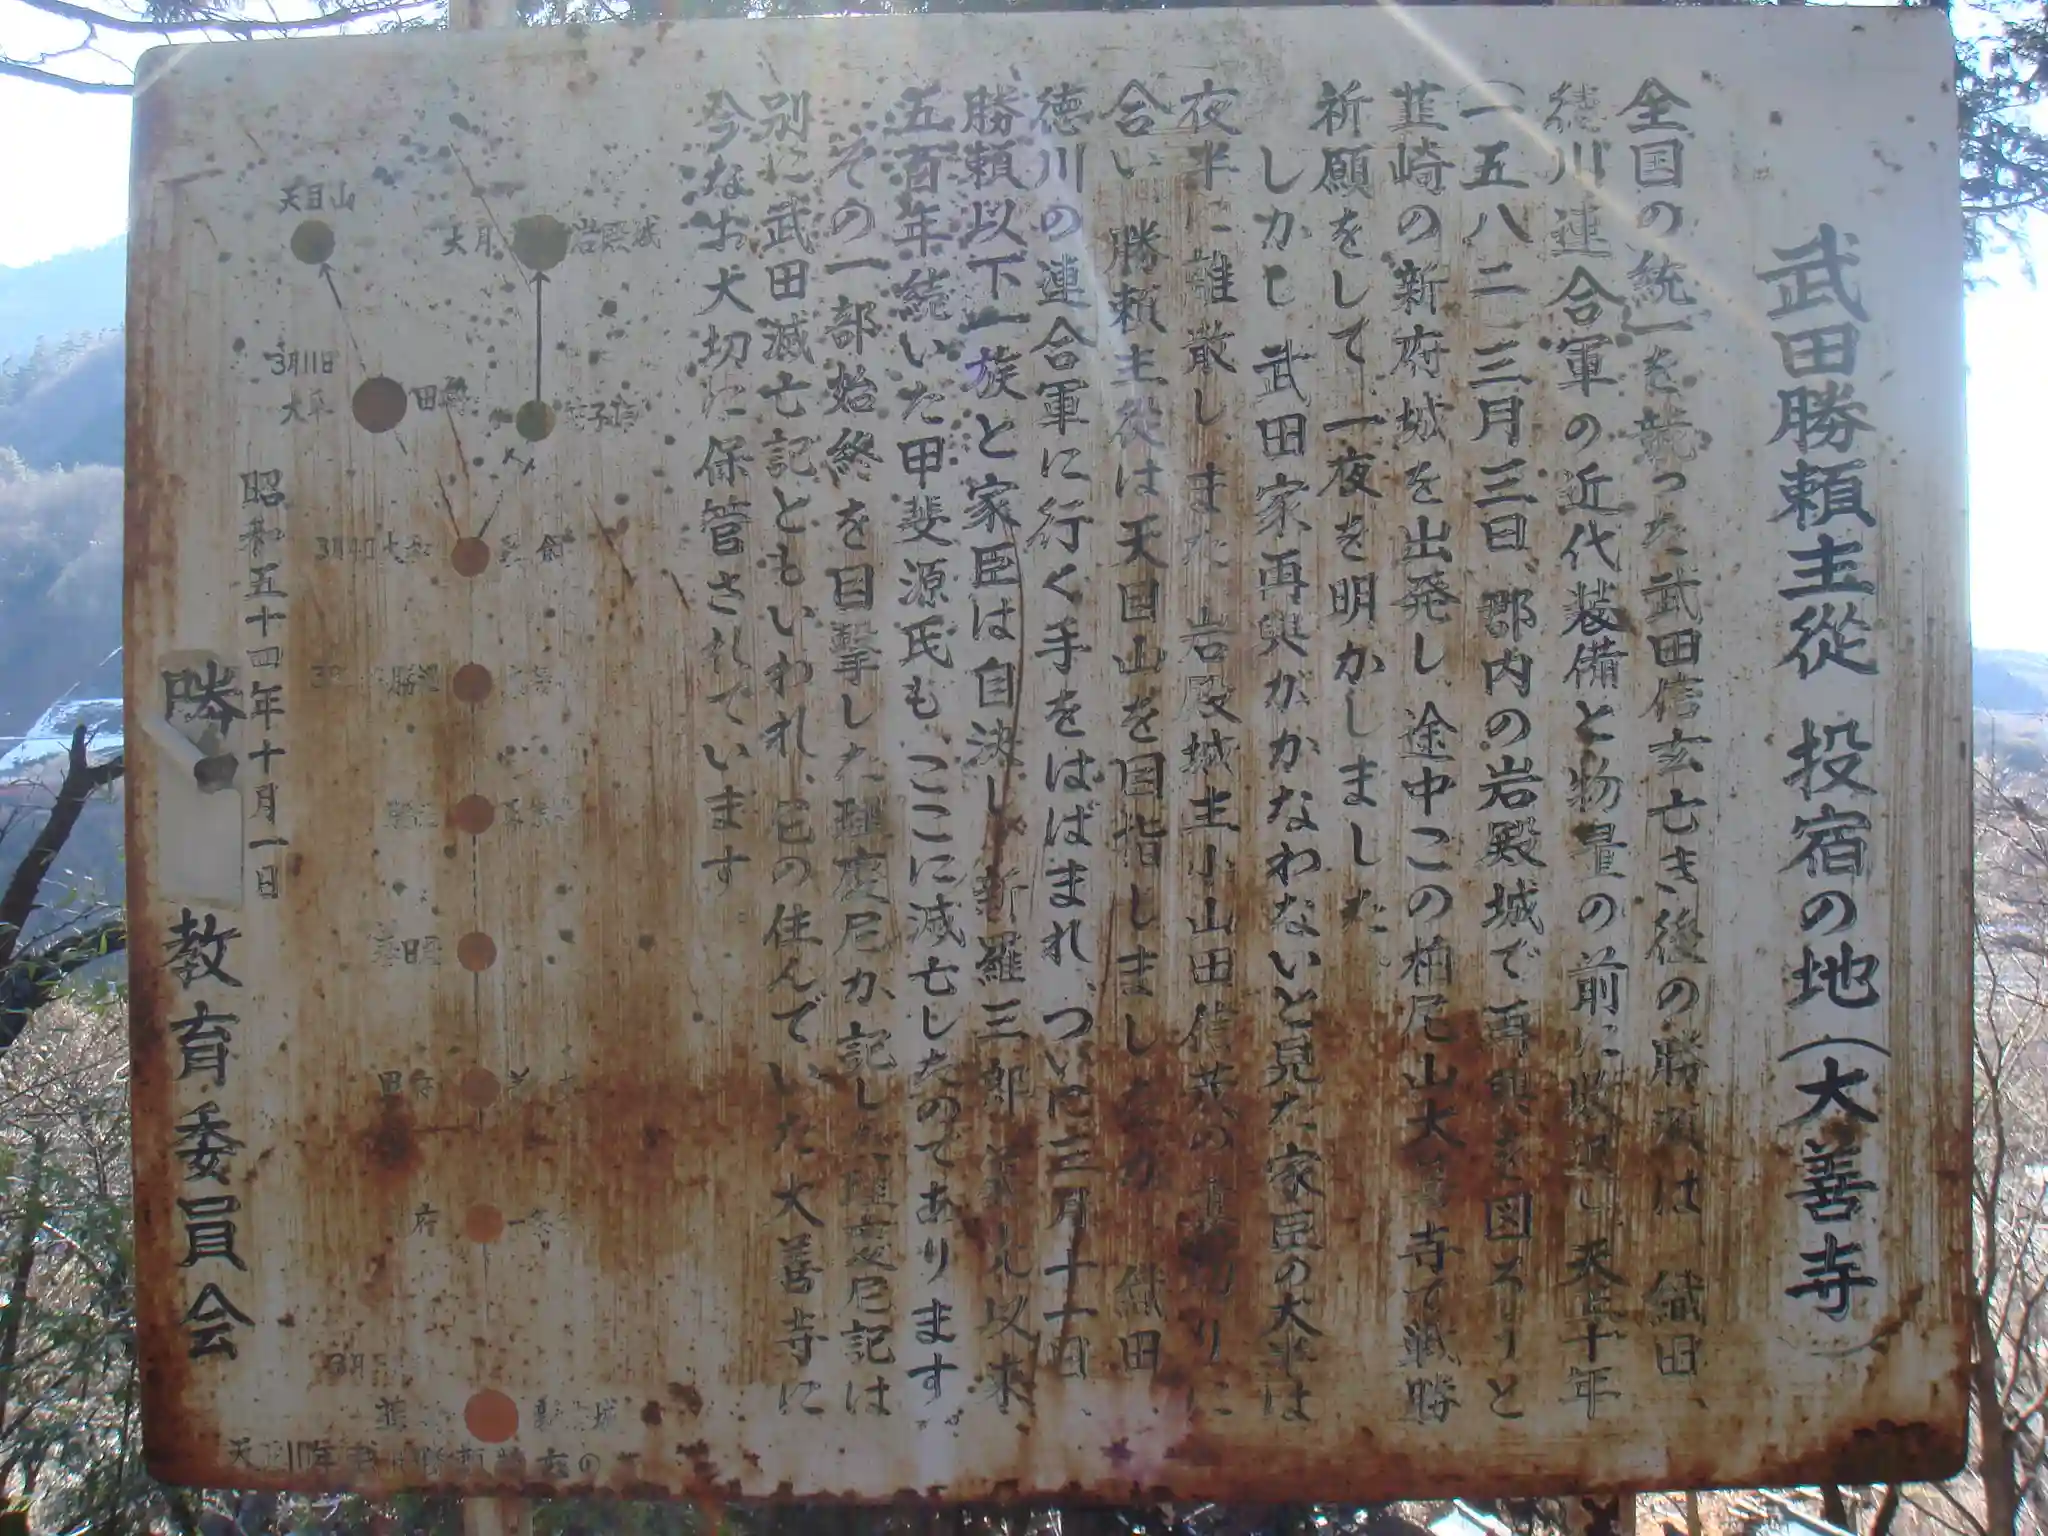 武田勝頼主従 投宿の地(大善寺)
全国の統一を競った武田信玄亡き後の勝頼は、織田、
徳川連合軍の近代装備と物量の前に敗退し、天正十年
(一五八二)三月三日、郡内の岩殿城で再興を図ろうと
韮崎の新府城を出発し、途中この柏尾山大善寺で戦勝
祈願をして一夜を明かしました。
しかし、武田家再興がかなわないと見た家臣の大半は
夜半に離散し、また、岩殿城主小山田信茂の裏切りに
合い、勝頼主従は天目山を目指しましたが、織田、
徳川の連合軍に行く手をはばまれ、ついに三月十一日、
勝頼以下一族と家臣は自決し、新羅三郎義光以来、
五百年続いた甲斐源氏も、ここに滅亡したのであります。
その一部始終を目撃した理慶尼が記した理慶尼記は
別に武田滅亡記ともいわれ、尼の住んでいた大善寺に
今なお大切に保管されています。
天目山
大月
岩殿城
3月11日
田野
笹子
3月4日
春日居
府
3月
城
昭和五十四年十月一日
勝
教育委員会